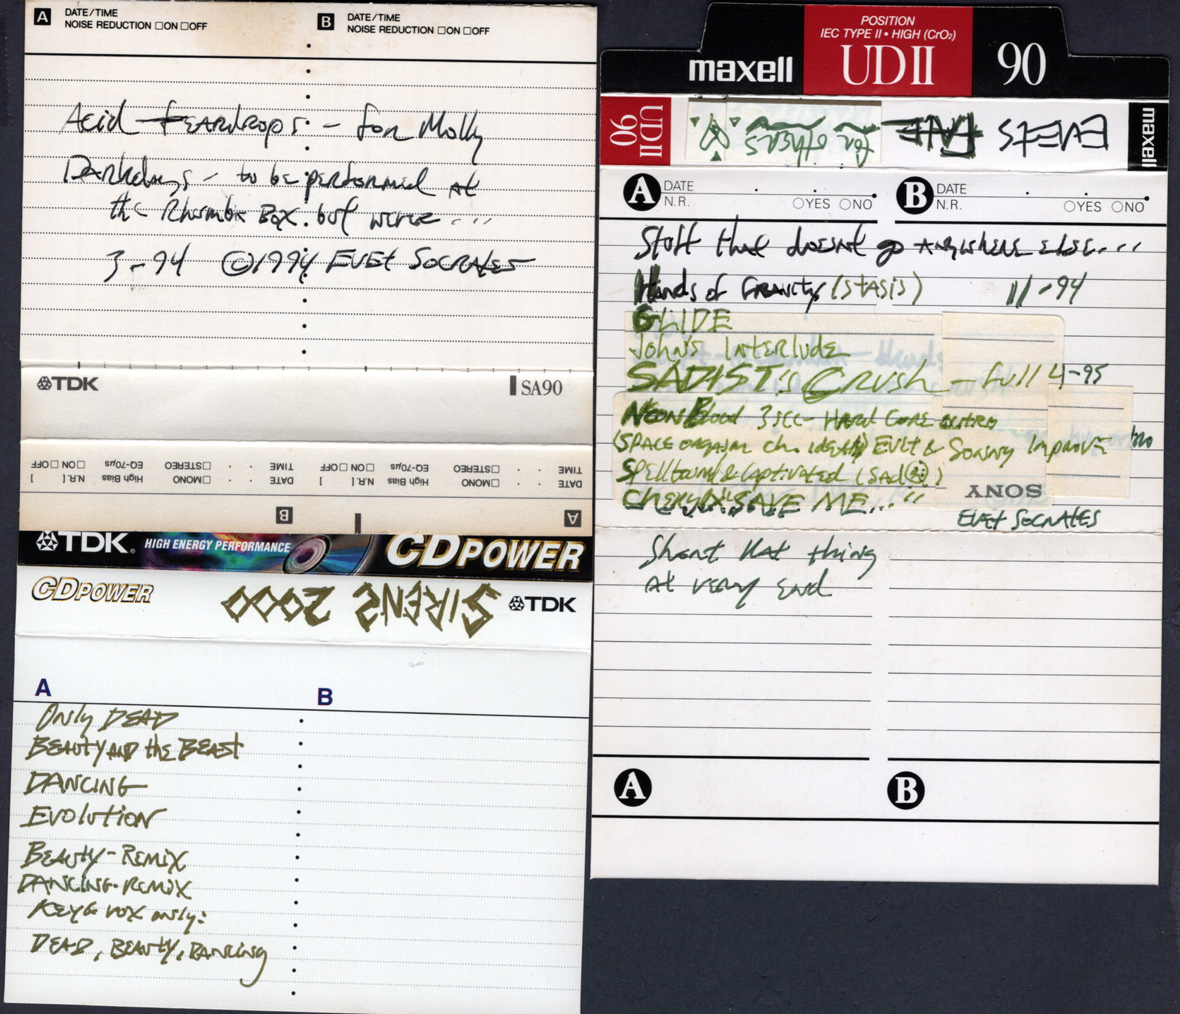 A DATE/TIME
NOISE REDUCTION □ON □OFF
B DATE/TIME
NOISE REDUCTION □ON □OFF
Acid Teardrops - for Molly
Darkdays - to be performed at
the Rhombix Box. but worse....
3-94 ©1994 EVET SOCRATES
TDK
SA90
A
DATE
TIME
□MONO
□STEREO
High Bias
EQ-70µs
N.R. [ ]
□ON □OFF
B
DATE
TIME
□MONO
□STEREO
High Bias
EQ-70µs
N.R. [ ]
□ON □OFF
TDK HIGH ENERGY PERFORMANCE CDPOWER
CDPOWER
SIRENS 2000
TDK
A
B
Only DEAD
BEAUTY AND the BEAST
DANCING
EVOLUTION
BEAUTY-REMIX
DANCING-REMIX
KEY & VOX only:
DEAD, BEAUTY, DANCING
maxell
POSITION
IEC TYPE II • HIGH (CrO₂)
UDII
90
UDII
90
EVETS
for others
maxell
A DATE
N.R. ○YES ○NO
B DATE
N.R. ○YES ○NO
Stuff that doesnt go anywhere else....
Hands of Gravity (STASIS) 11-94
GLIDE
John's Interlude
SADIST'S Crush - full 4-95
NEON Blood 3 sec - Hard Core outro
(SPACE orgasm ch. identity) EVET & Sonny Improv
Spellbound & Captivated (SAD)
Cheryl "SAVE ME..."
SONY
EVET SOCRATES
Short Kat thing
at very end
A
B